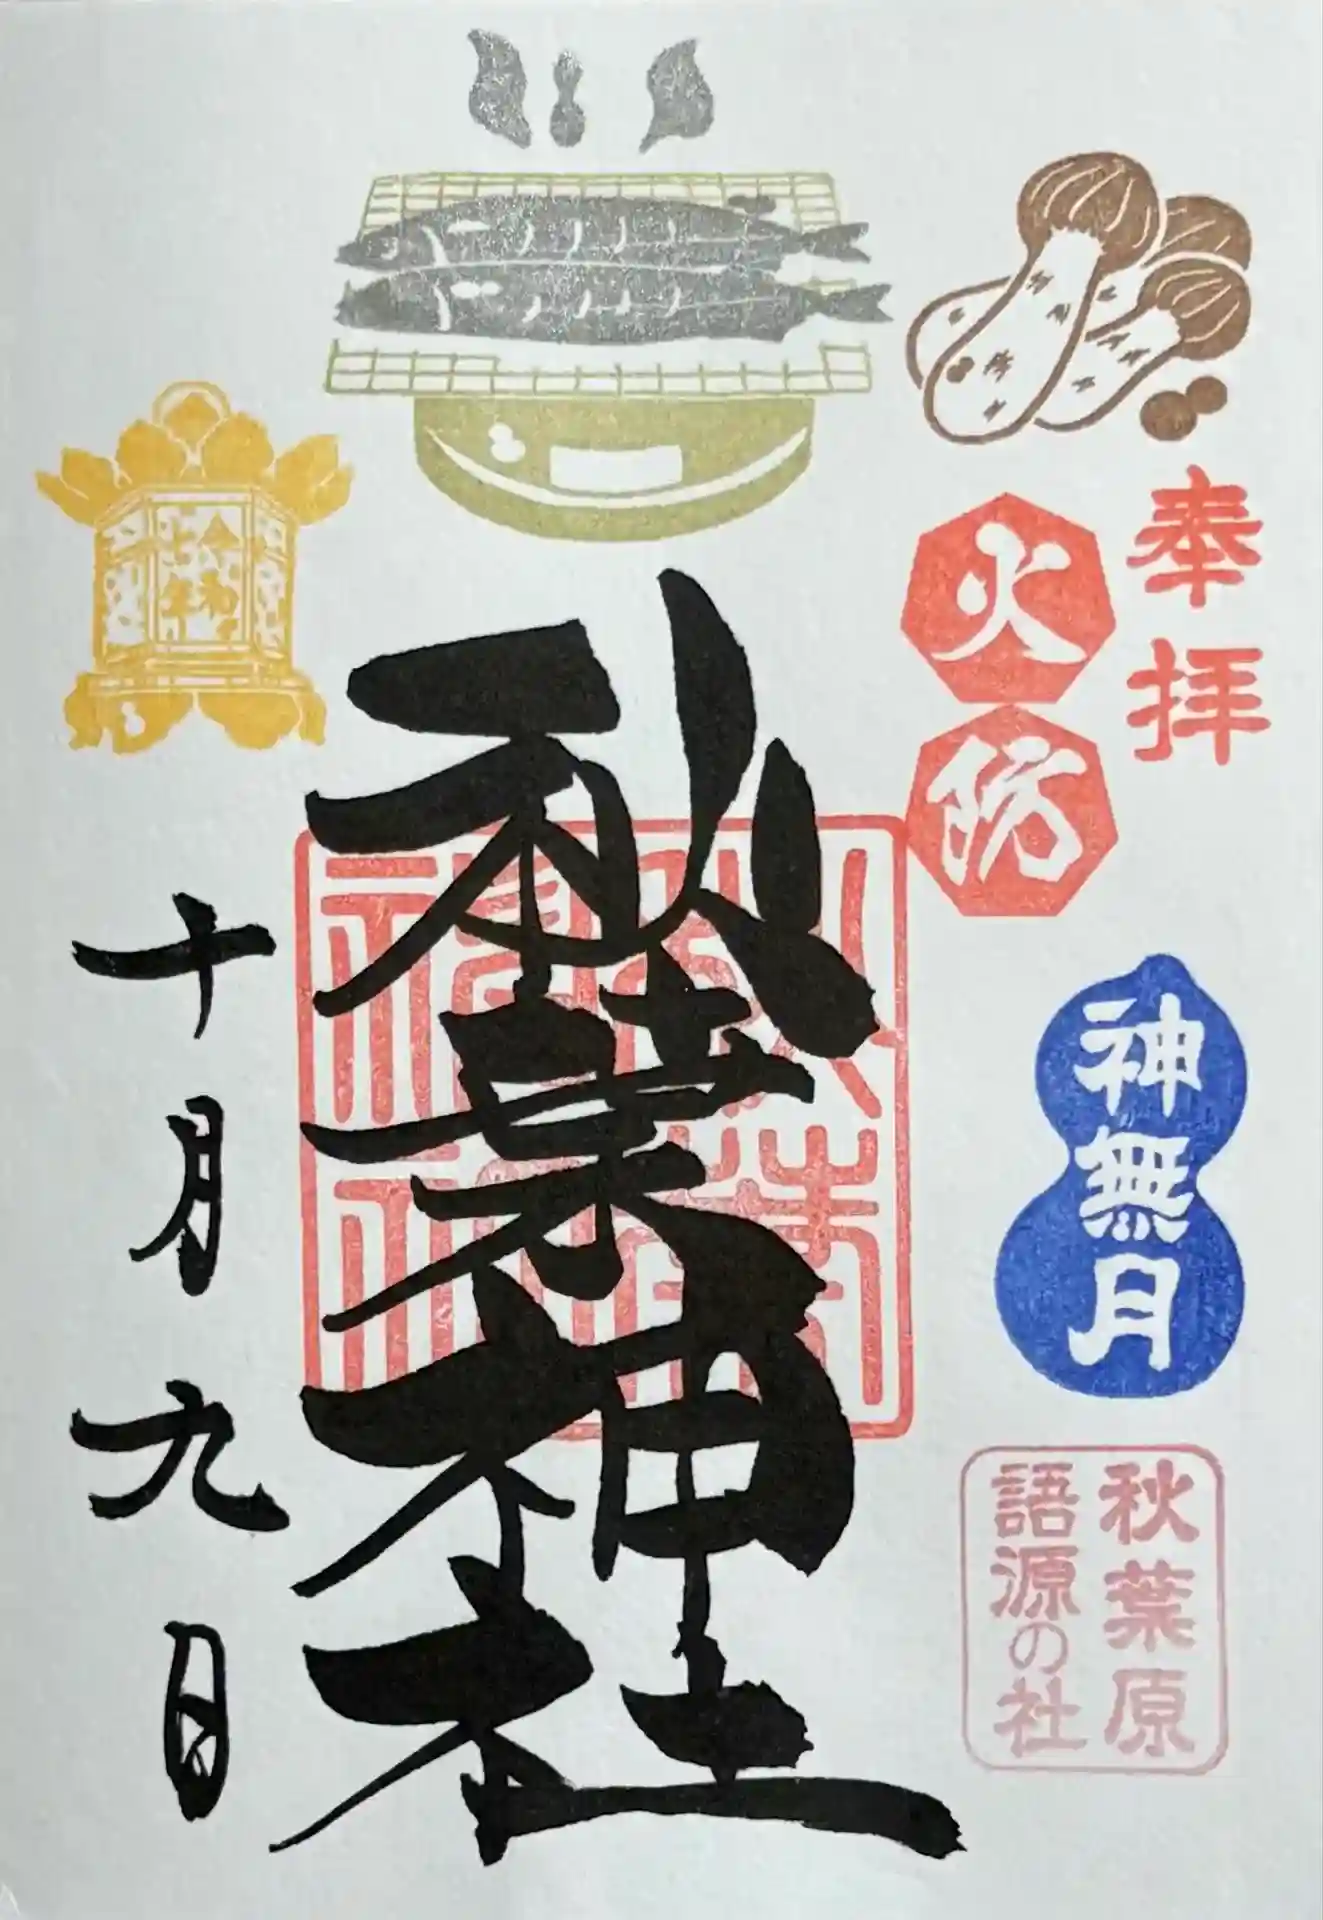 奉拝
火防
神無月
秋葉原
語源の社
秋葉神社
秋葉
神社
十月九日